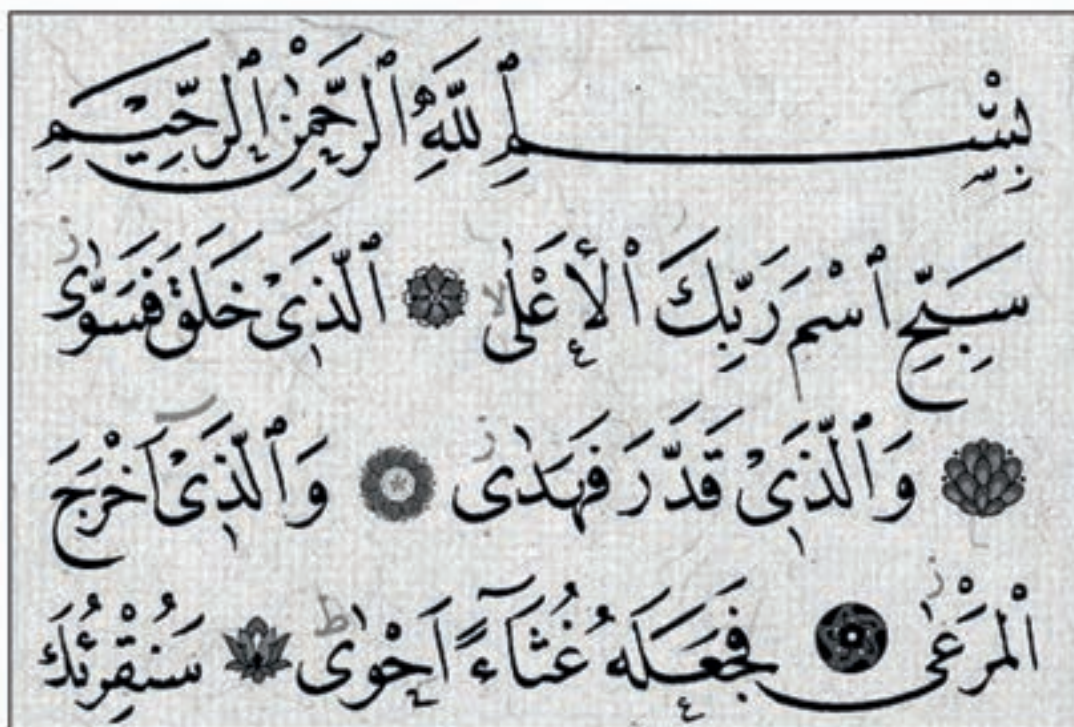 بِسْمِ ٱللَّهِ ٱلرَّحْمٰنِ ٱلرَّحِيمِ
سَبِّحِ ٱسْمَ رَبِّكَ ٱلْأَعْلٰى ٱلَّذِى خَلَقَ فَسَوّٰى
وَٱلَّذِى قَدَّرَ فَهَدٰى وَٱلَّذِىٓ اَخْرَجَ
ٱلْمَرْعٰى فَجَعَلَهُ غُثَآءً اَحْوٰى سَنُقْرِئُكَ